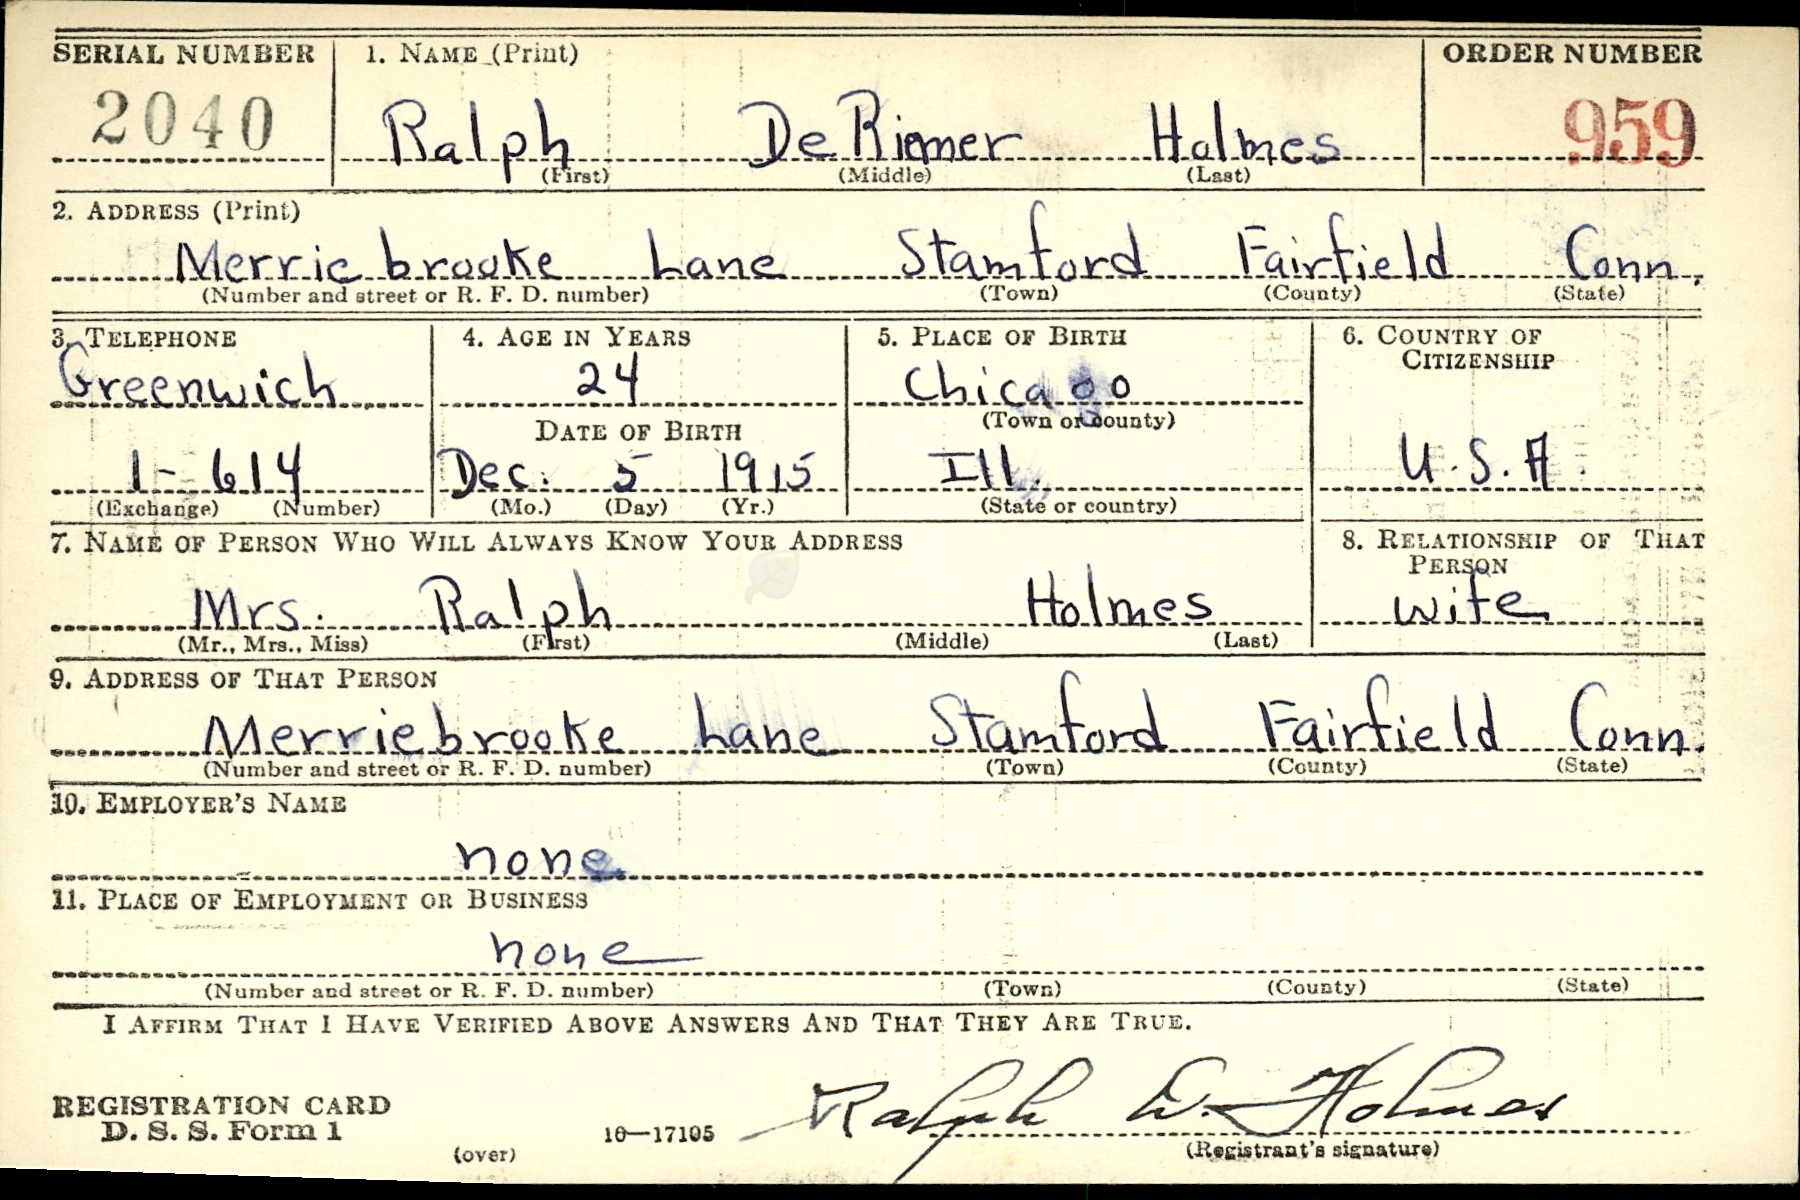 SERIAL NUMBER 1. NAME (Print) ORDER NUMBER
2040 Ralph De Rimer Holmes 959
(First) (Middle) (Last)
2. ADDRESS (Print)
Merriebrooke Lane Stamford Fairfield Conn.
(Number and street or R. F. D. number) (Town) (County) (State)
3. TELEPHONE 4. AGE IN YEARS 5. PLACE OF BIRTH 6. COUNTRY OF
CITIZENSHIP
Greenwich 24 Chicago
(Town or county)
DATE OF BIRTH
1-614 Dec. 5 1915 Ill. U.S.A.
(Exchange) (Number) (Mo.) (Day) (Yr.) (State or country)
7. NAME OF PERSON WHO WILL ALWAYS KNOW YOUR ADDRESS 8. RELATIONSHIP OF THAT
PERSON
Mrs. Ralph Holmes wife
(Mr., Mrs., Miss) (First) (Middle) (Last)
9. ADDRESS OF THAT PERSON
Merriebrooke Lane Stamford Fairfield Conn.
(Number and street or R. F. D. number) (Town) (County) (State)
10. EMPLOYER'S NAME
none
11. PLACE OF EMPLOYMENT OR BUSINESS
none
(Number and street or R. F. D. number) (Town) (County) (State)
I AFFIRM THAT I HAVE VERIFIED ABOVE ANSWERS AND THAT THEY ARE TRUE.
REGISTRATION CARD
D. S. S. Form 1 16—17105 Ralph D. Holmes
(over) (Registrant's signature)